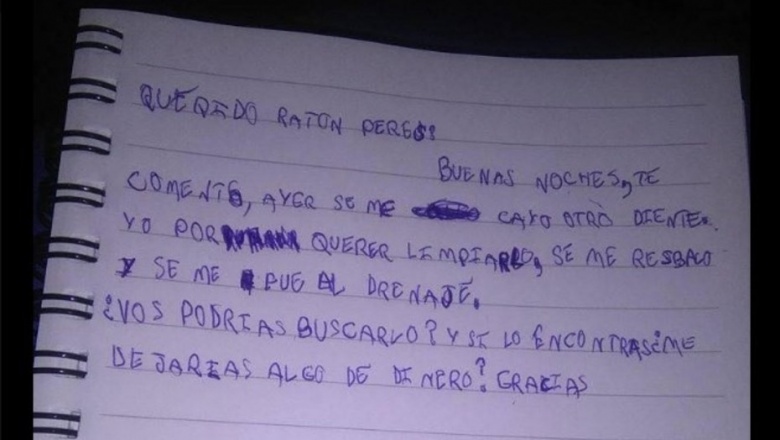 QUERIDO RATON PERES:
BUENAS NOCHES, TE
COMENTO, AYER SE ME CAYO OTRO DIENTE.
YO POR QUERER LIMPIARLO, SE ME RESBALO
Y SE ME FUE AL DRENAJE.
¿VOS PODRIAS BUSCARLO? Y SI LO ENCONTRAS¿ME
DEJARIAS ALGO DE DINERO? GRACIAS